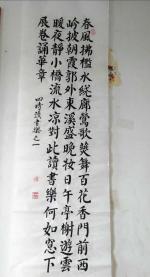 春風拂檻水繞廊鶯歌燕舞百花香門前西
岭披朝霞郭外東溪盛晚妝日午亭榭遊雲
暖夜靜小橋流水凉對此讀書樂何如窓下
展卷誦華章
四時讀書樂之一